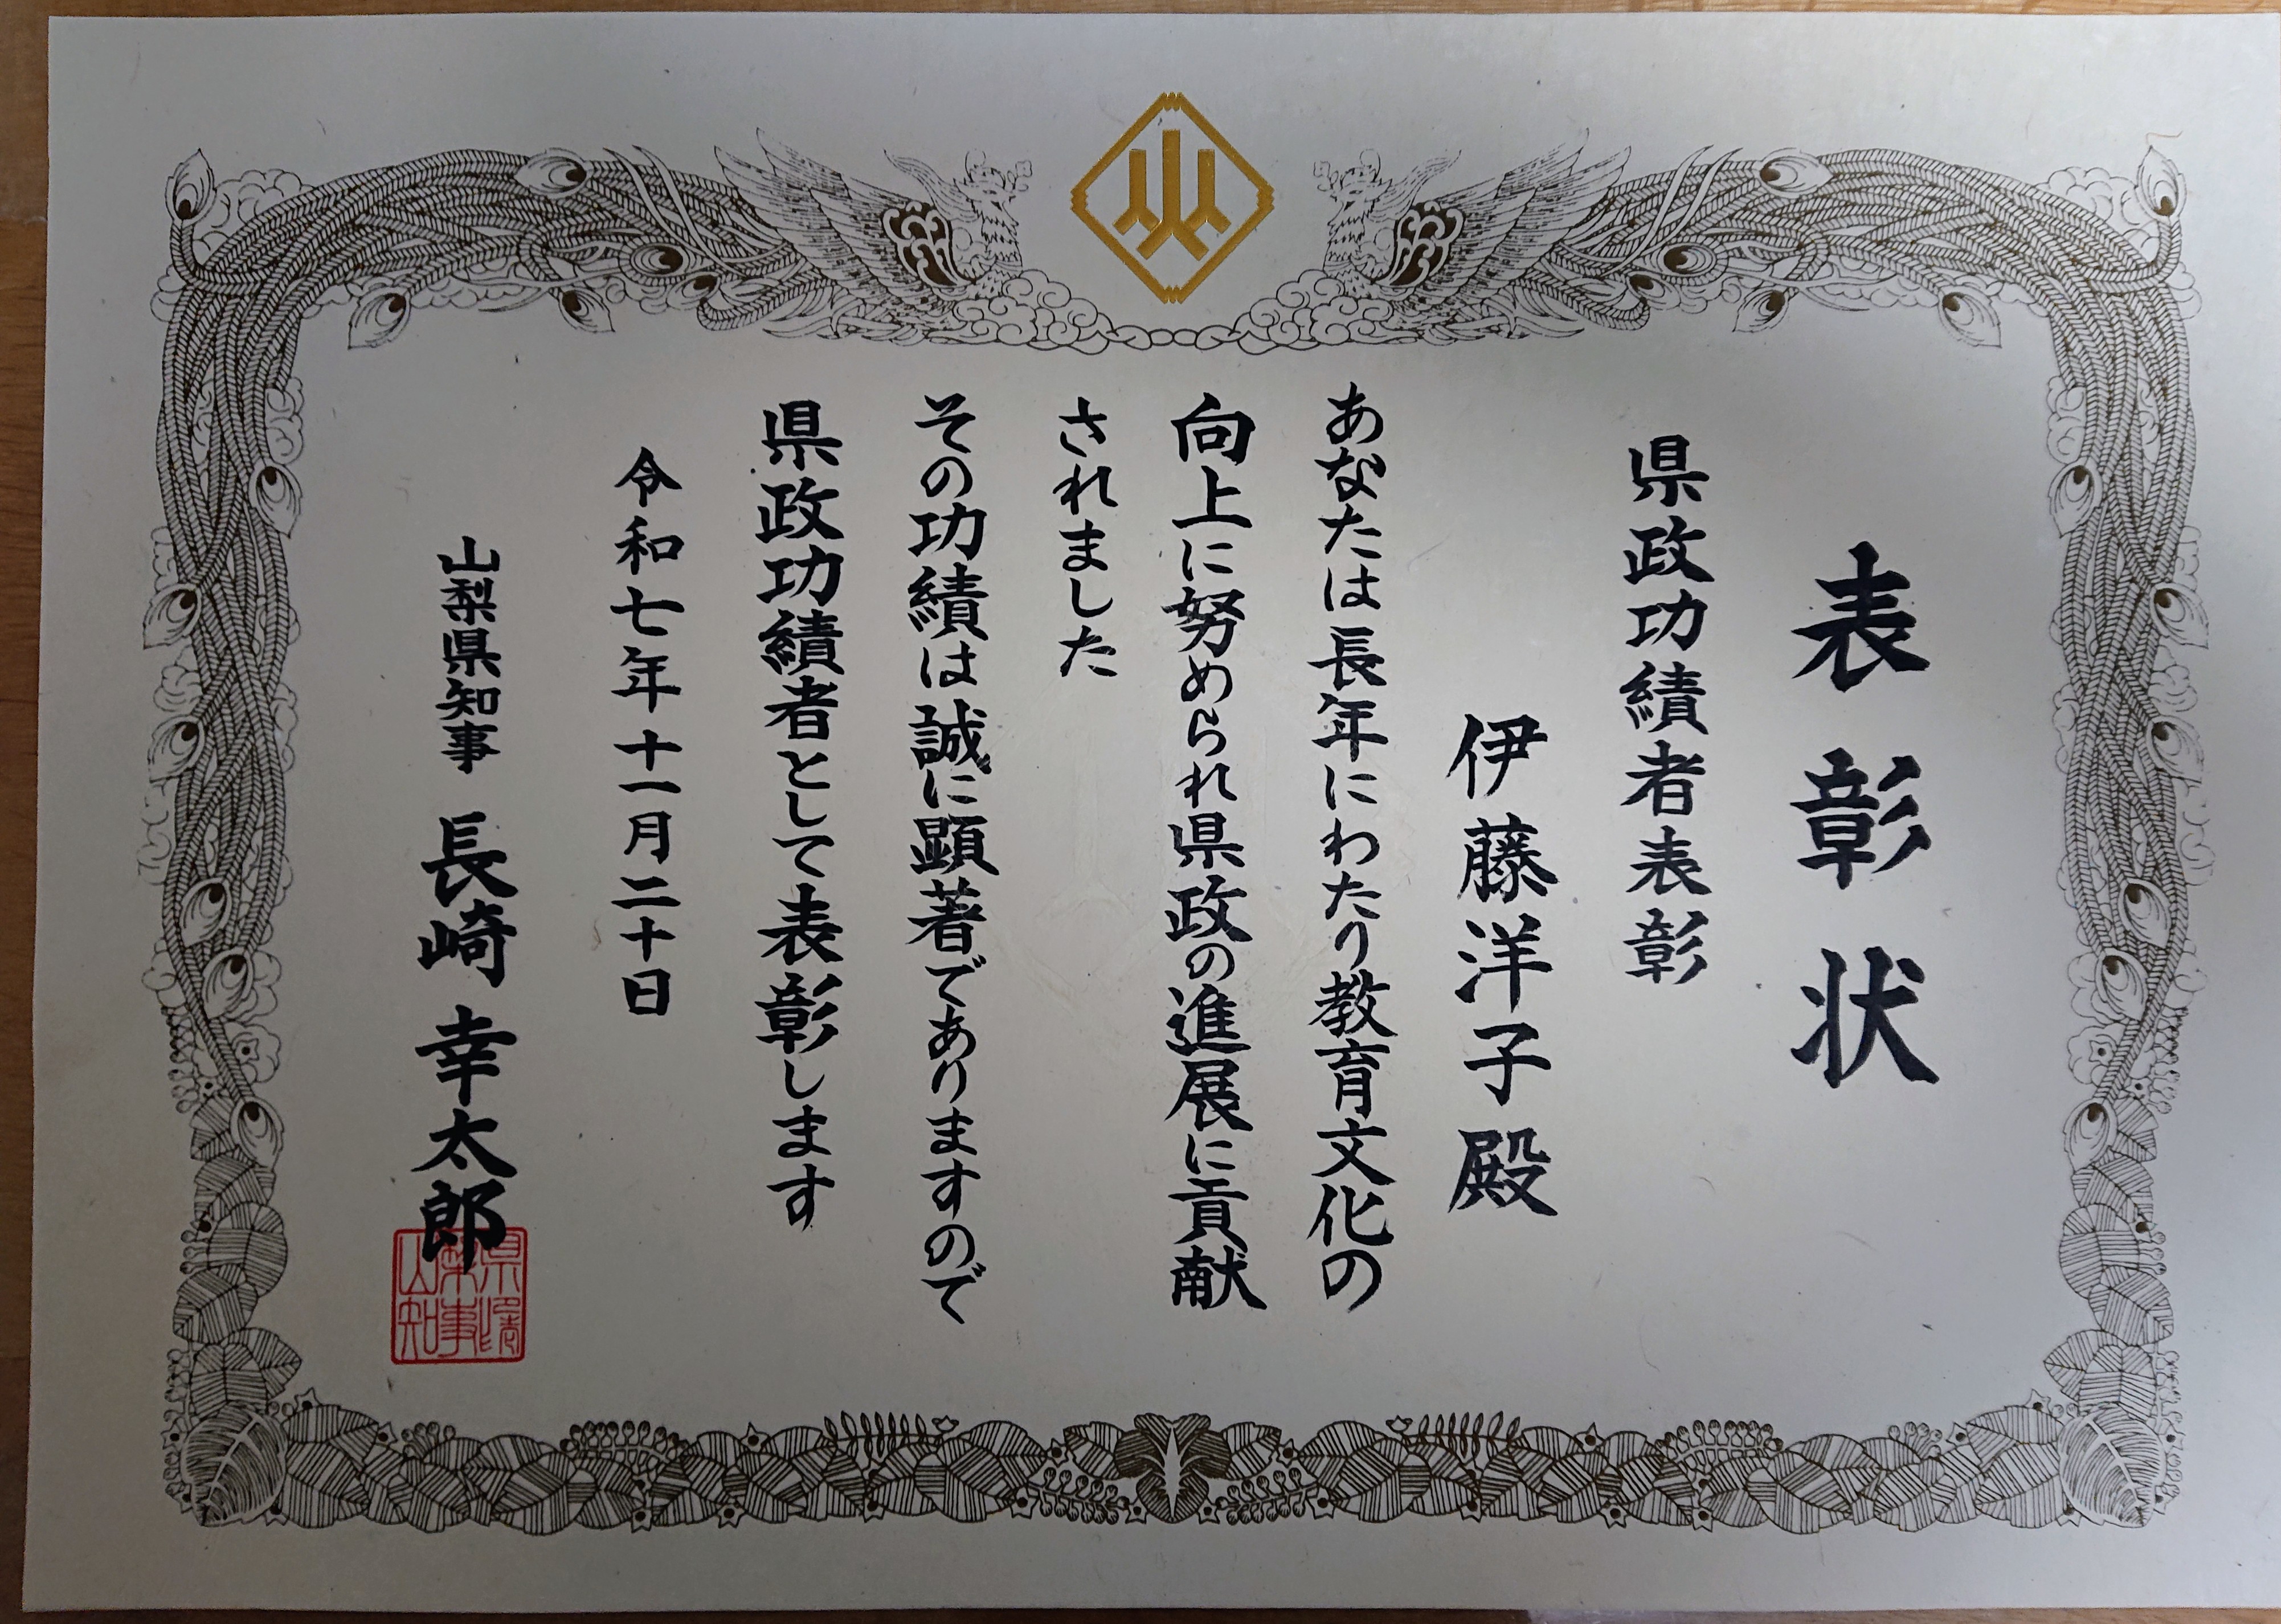 表彰状
県政功績者表彰
伊藤洋子殿
あなたは長年にわたり教育文化の
向上に努められ県政の進展に貢献
されました
その功績は誠に顕著でありますので
県政功績者として表彰します
令和七年十一月二十日
山梨県知事 長崎幸太郎